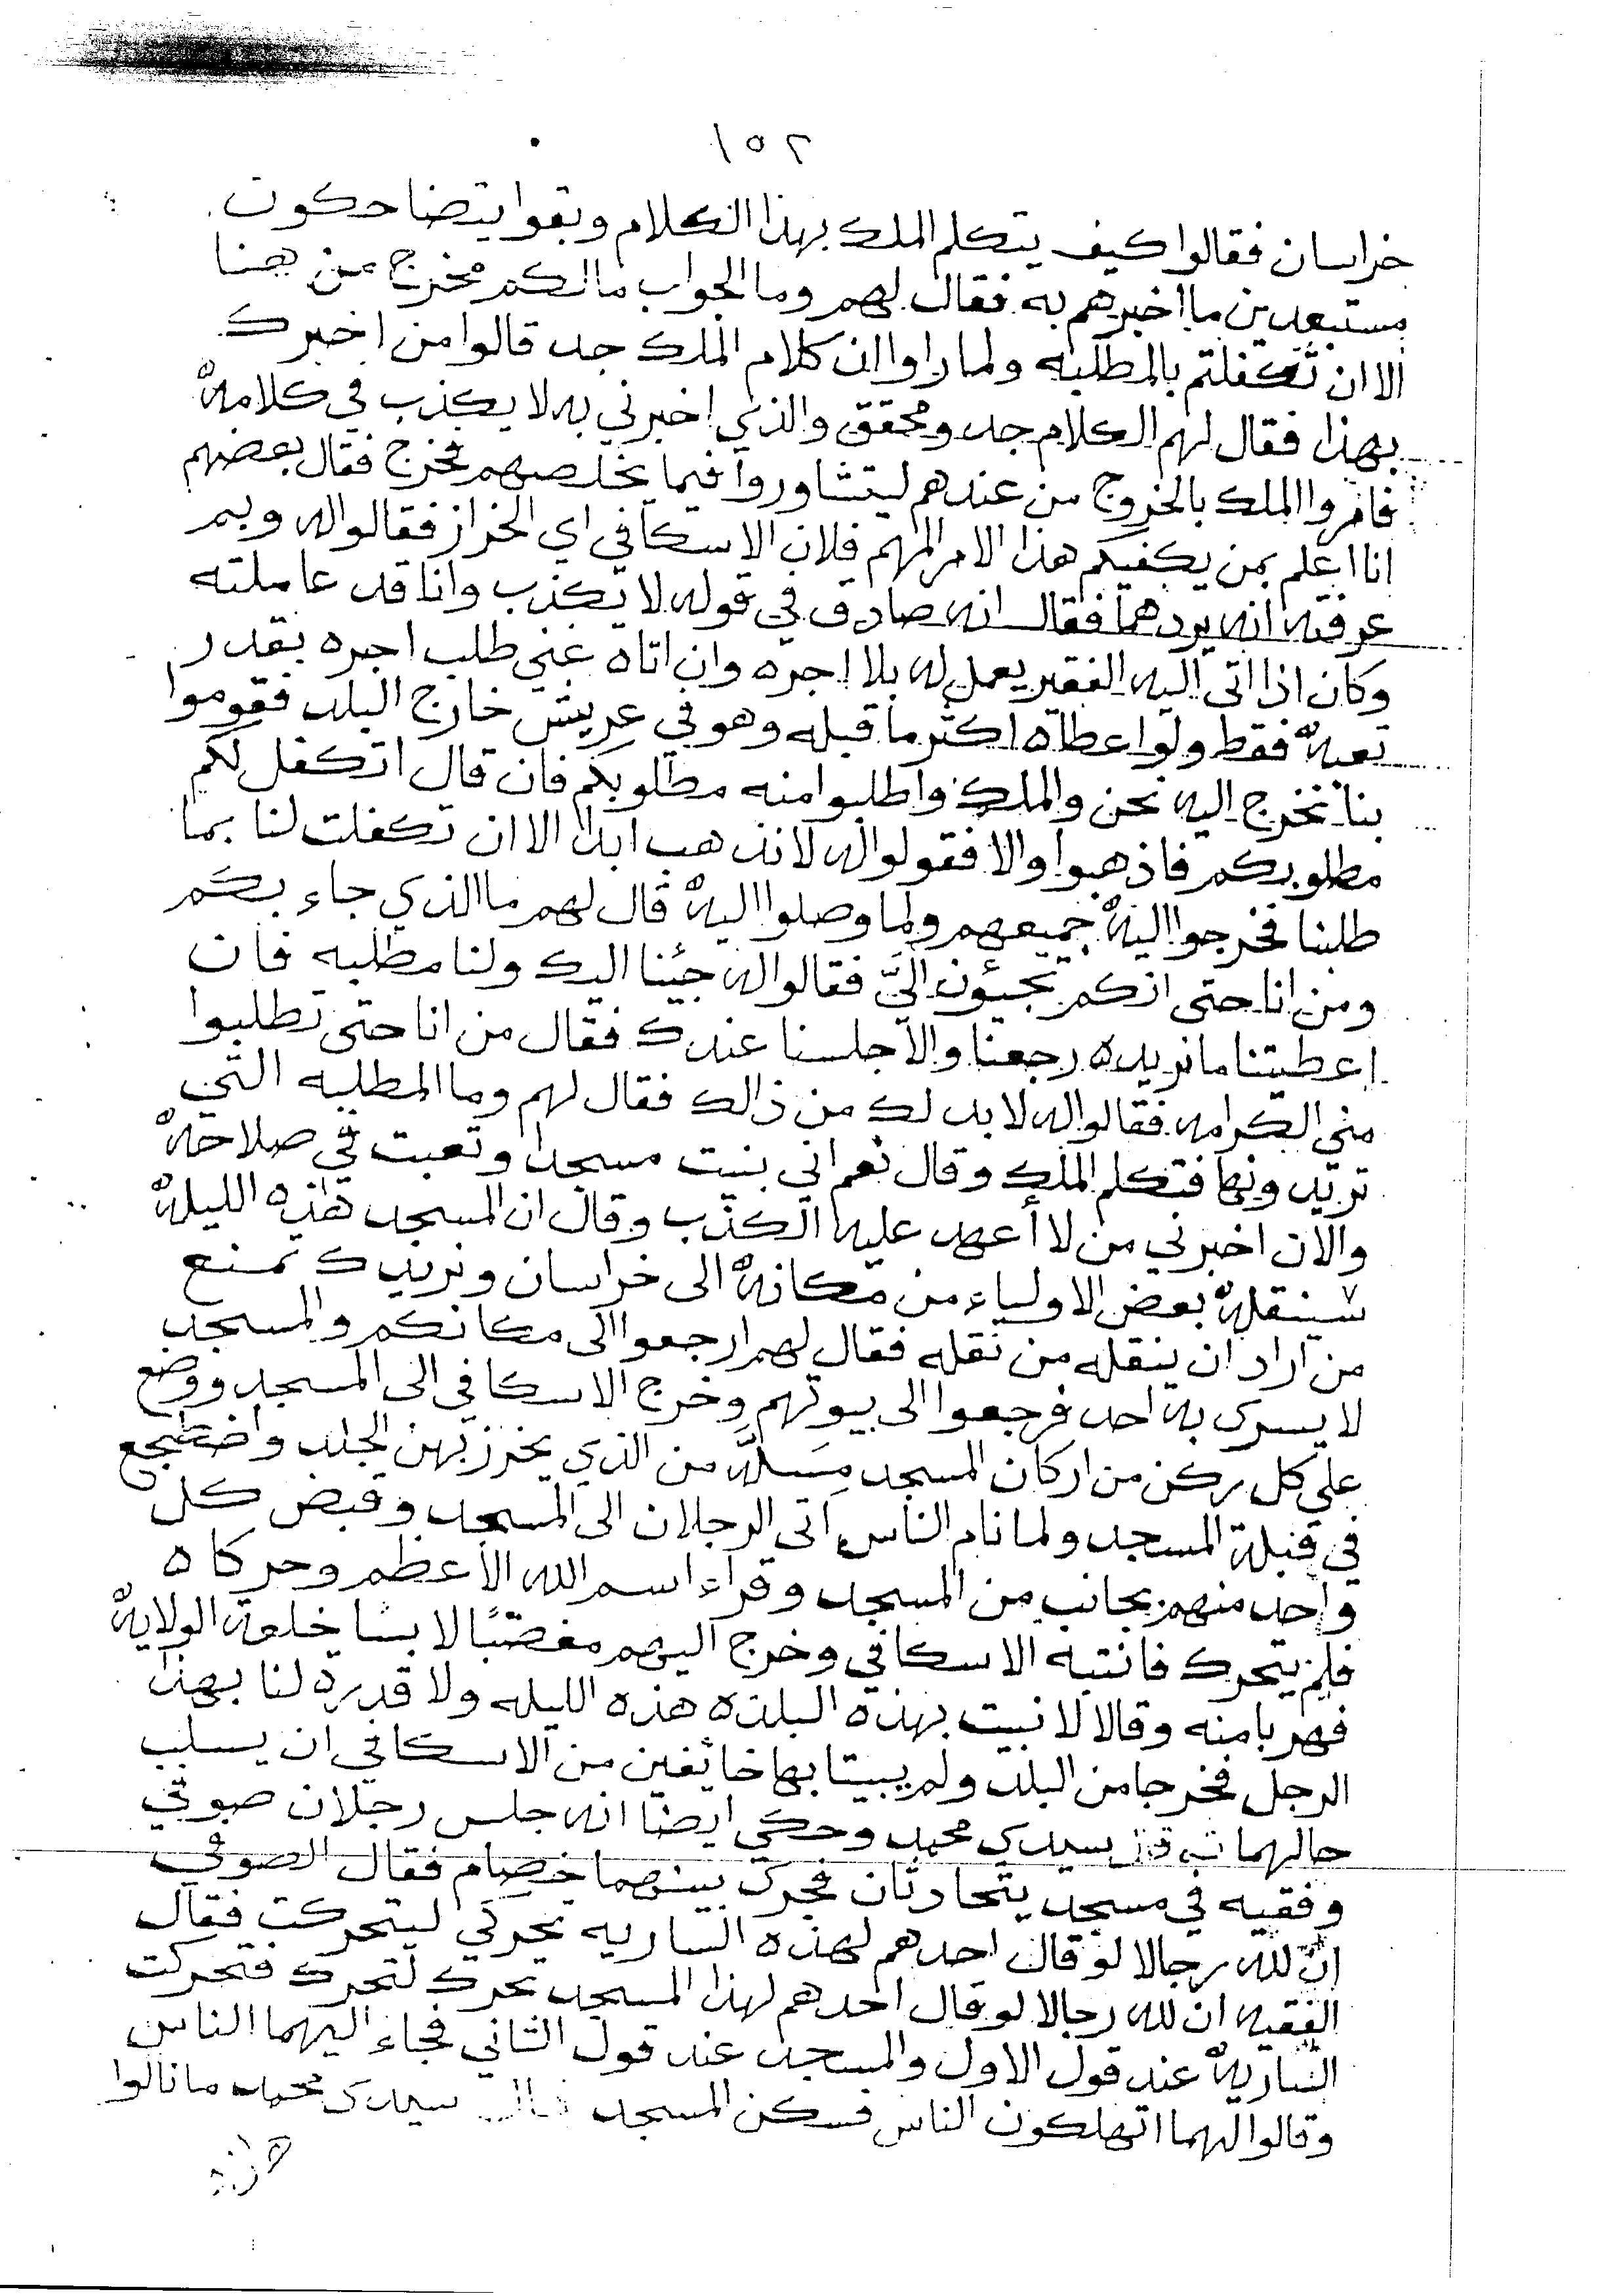 ١٥٢
خراسان فقالوا كيف يتكلم الملك بهذا الكلام وبقوا يتضاحكون
مستبعدين ما اخبرهم به فقال لهم وما الجواب ما لكم مخرج من هنا
الا ان تكفلتم بالمطلبه ولما راوا ان كلام الملك جد قالوا من اخبرك
بهذا فقال لهم الكلام جد ومحقق والذي اخبرني به لا يكذب في كلامه
فامروا الملك بالخروج من عندهم ليتشاوروا فيما يخلصهم فخرج فقال بعضهم
انا اعلم بمن يكفيكم هذا الامر المهم فلان الاسكافي اي الخراز فقالوا له وبم
عرفته انه يرد هما فقال انه صادق في قوله لا يكذب وانا قد عاملته
وكان اذا اتى اليه الفقير يعمل له بلا اجره وان اتاه غني طلب اجره بقدر
تعبه فقط ولو اعطاه اكثر ما قبله وهو في عريش خارج البلد فقوموا
بنا نخرج اليه نحن والملك واطلبوا منه مطلوبكم فان قال اتكفل لكم
مطلوبكم فاذهبوا والا فقولوا له لا نذهب ابدا الا ان تكفلت لنا بما
طلبنا فخرجوا اليه جميعهم ولما وصلوا اليه قال لهم ما الذي جاء بكم
ومن انا حتى انكم تجيئون اليَّ فقالوا له جئنا اليك ولنا مطلبه فان
اعطيتنا ما نريده رجعنا والا جلسنا عندك فقال من انا حتى تطلبوا
مني الكرامه فقالوا له لا بد لك من ذالك فقال لهم وما المطلبه التي
تريدونها فتكلم الملك وقال نعم اني بنيت مسجدا وتعبت في صلاحه
والان اخبرني من لا أعهد عليه الكذب وقال ان المسجد هذه الليله
سينقله بعض الاولياء من مكانه الى خراسان ونريدك تمنع
من اراد ان ينقله من نقله فقال لهم ارجعوا الى مكانكم والمسجد
لا يسرى به احد فرجعوا الى بيوتهم وخرج الاسكافي الى المسجد ووضع
على كل ركن من اركان المسجد مِسَلَّه من الذي يخرز بهن الجلد واضطجع
في قبلة المسجد ولما نام الناس اتى الرجلان الى المسجد وقبض كل
واحد منهم بجانب من المسجد وقراء اسم الله الأعظم وحركاه
فلم يتحرك فانتبه الاسكافي وخرج اليهم مغضبًا لابسًا خلعة الولايه
فهربا منه وقالا لا نبيت بهذه البلده هذه الليله ولا قدره لنا بهذا
الرجل فخرجا من البلد ولم يبيتا بها خائفين من الاسكافي ان يسلب
حالهما سيدى محمد وحكي ايضا انه جلس رجلان صوفي
وفقيه في مسجد يتحادثان فجرى بينهما خصام فقال الصوفي
انّ لله رجالا لو قال احدهم لهذه الساريه تحركي لتحركت فقال
الفقيه ان لله رجالا لو قال احدهم لهذا المسجد تحرك لتحرك فتحركت
الساريه عند قول الاول والمسجد عند قول الثاني فجاء اليهما الناس
وقالوا لهما اتهلكون الناس فسكن المسجد قال سيدى محمد ما نالوا